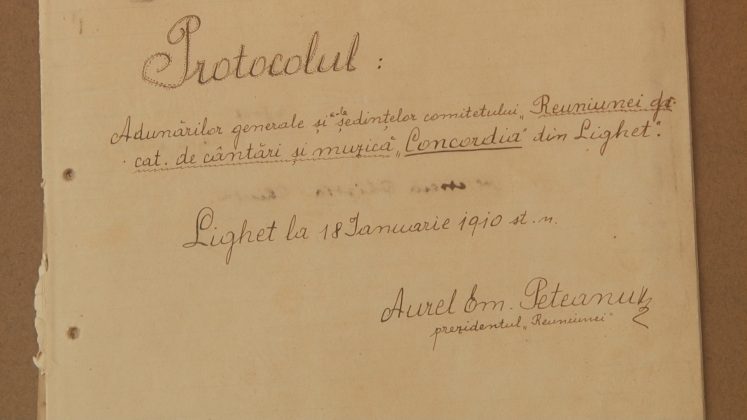 Protocolul:
Adunărilor generale și a-le ședințelor comitetului „Reuniunei gr.
cat. de cântări și muzică „Concordia" din Lighet".
Lighet la 18 Ianuarie 1910 st. n.
Aurel Em. Peteanu
prezidentul „Reuniunei"